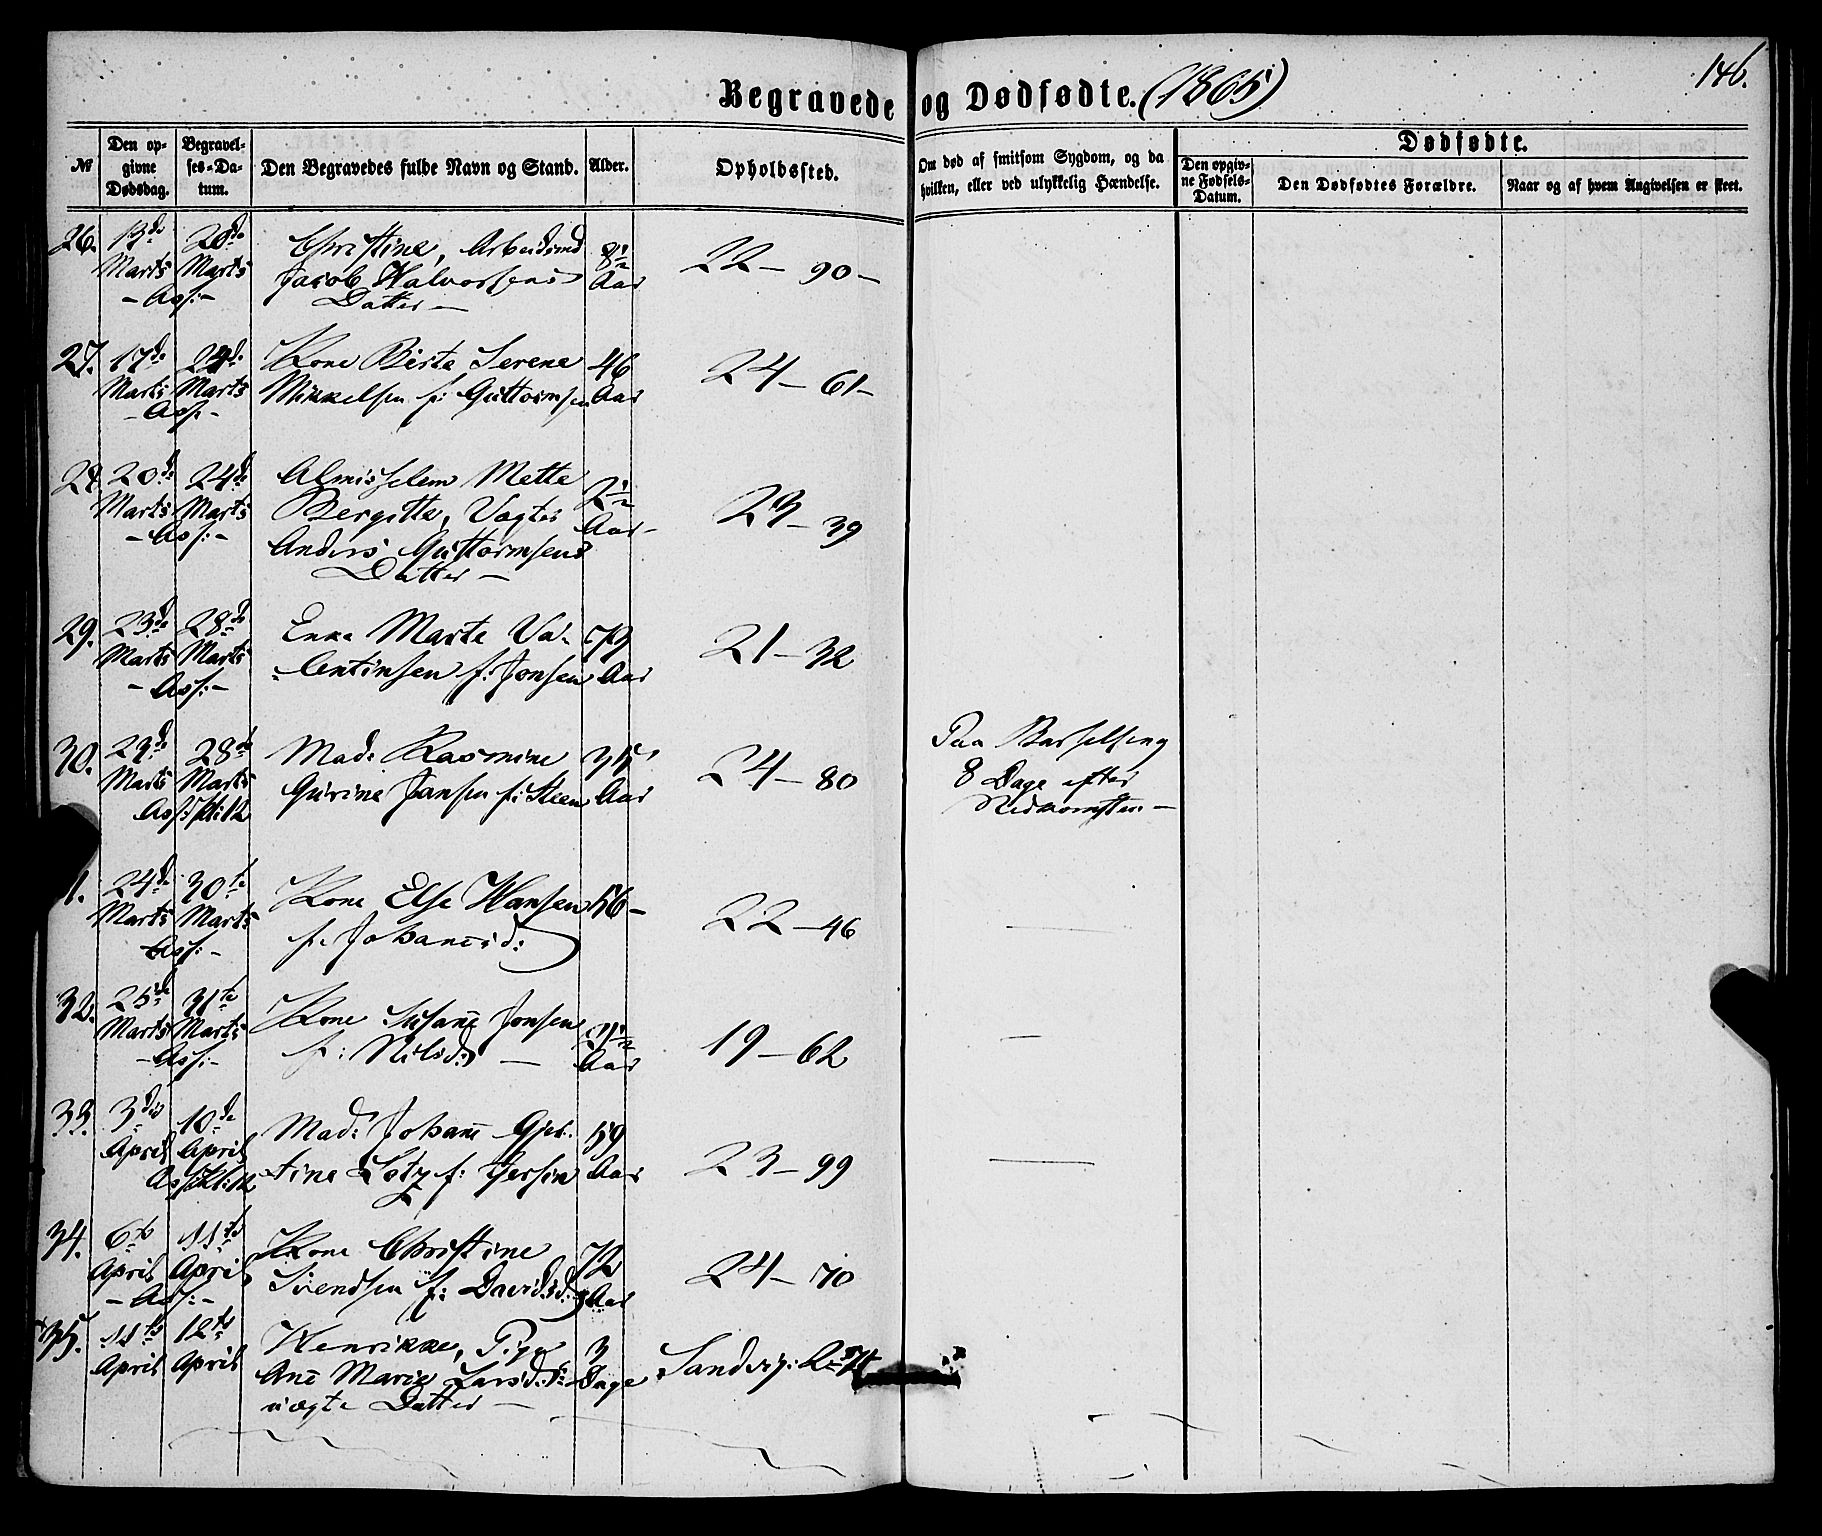 146.
Begravede og Dødfødte. (1865)
№
Den opgivne Dødsdag.
Begravelses-Datum.
Den Begravedes fulde Navn og Stand.
Alder.
Opholdssted.
Om død af smitsom Sygdom, og da hvilken, eller ved ulykkelig Hændelse.
Dødfødte.
Den opgivne Fødsels-Datum.
Den Dødfødtes Forældre.
Naar og af hvem Angivelsen er skeet.
26. 13de 20de Christine, Arbeidsmd 8½ 22 – 90 –
Marts Marts Jacob Halvorsens Aar
– Ass: – Datter –
27. 17de 24de Kone Berte Serene 46 24 – 61 –
Marts Marts Mikkelsen f: Guttormsen Aar
– Ass –
28. 20de 24de Mette 23 – 39
Marts Marts Bergitte, Vægter Aar –
– Ass: – Anders Guttormsens
Datter –
29. 23de 28de Enke Marte Va- 79 21 – 32
Marts Marts lentinsen f: Jonsen Aar
– Ass: –
30. 23de 28de Mad: Rasmine 35 24 – 80 Paa Barselseng
Marts Marts Gurine Jansen f: Steen Aar 8 Dage efter
Ass: Kl: 12 Nedkomsten. –
1. 24de 30te Kone Else Hansen 56 – 22 – 46
Marts Marts f. Johanesd:
Ass: –
32. 25de 31te Kone Susane Jonsen 19 – 62
Marts Marts f: Nilsd: – Aar
– Ass: –
33. 3die 10de Mad: Johane Gjer- 59 23 – 99
April April tine Lotz f: Aar
Ass: Kl: 12
34. 6te 11te Kone Christine 72 24 – 70
April April Svendsen f: Davidsd: Aar
– Ass: –
35. 11te 12te Henrikke, Pige 3 Sandvig:
April April Ane Marie Larsd: Dage
uægte Datter –